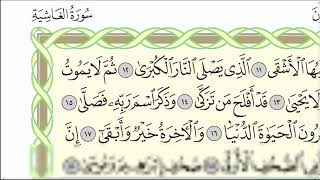 سُورَةُ الْغَاشِيَةِ
الْأَشْقَى ١١ الَّذِي يَصْلَى النَّارَ الْكُبْرَىٰ ١٢ ثُمَّ لَا يَمُوتُ
يَحْيَىٰ ١٣ قَدْ أَفْلَحَ مَنْ تَزَكَّىٰ ١٤ وَذَكَرَ اسْمَ رَبِّهِ فَصَلَّىٰ ١٥
الْحَيَوٰةَ الدُّنْيَا ١٦ وَالْآخِرَةُ خَيْرٌ وَأَبْقَىٰ ١٧ إِنَّ